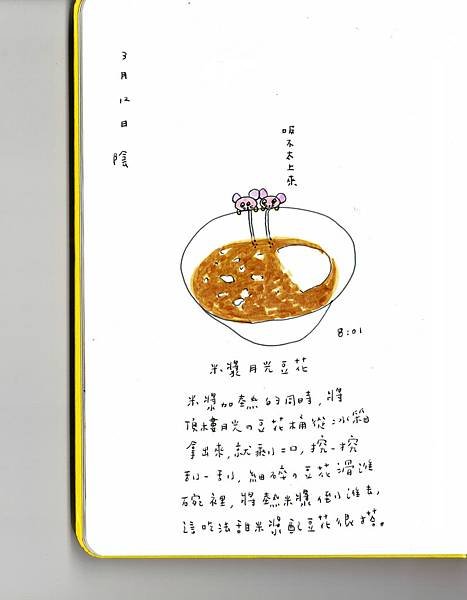 3月12日 陰
吸不太上來
8:01
米漿月光豆花
米漿加熱的同時，將
頂樓月光の豆花桶從冰箱
拿出來，就剩一口，挖一挖
刮一刮，細碎の豆花滑進
碗裡，將熱米漿倒進去，
這吃法甜米漿配豆花很搭。